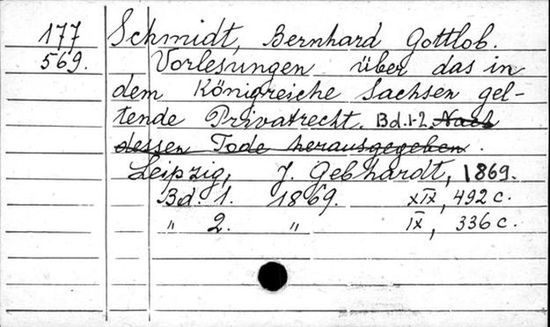 177 Schmidt, Bernhard Gottlob.
569. Vorlesungen über das in
dem Königreiche Sachsen gel-
tende Privatrecht. Bd.1-2. Nach
dessen Tode herausgegeben.
Leipzig, J. Gebhardt, 1869.
Bd. 1. 1869. XIX, 492 c.
" 2. " IX, 336 c.